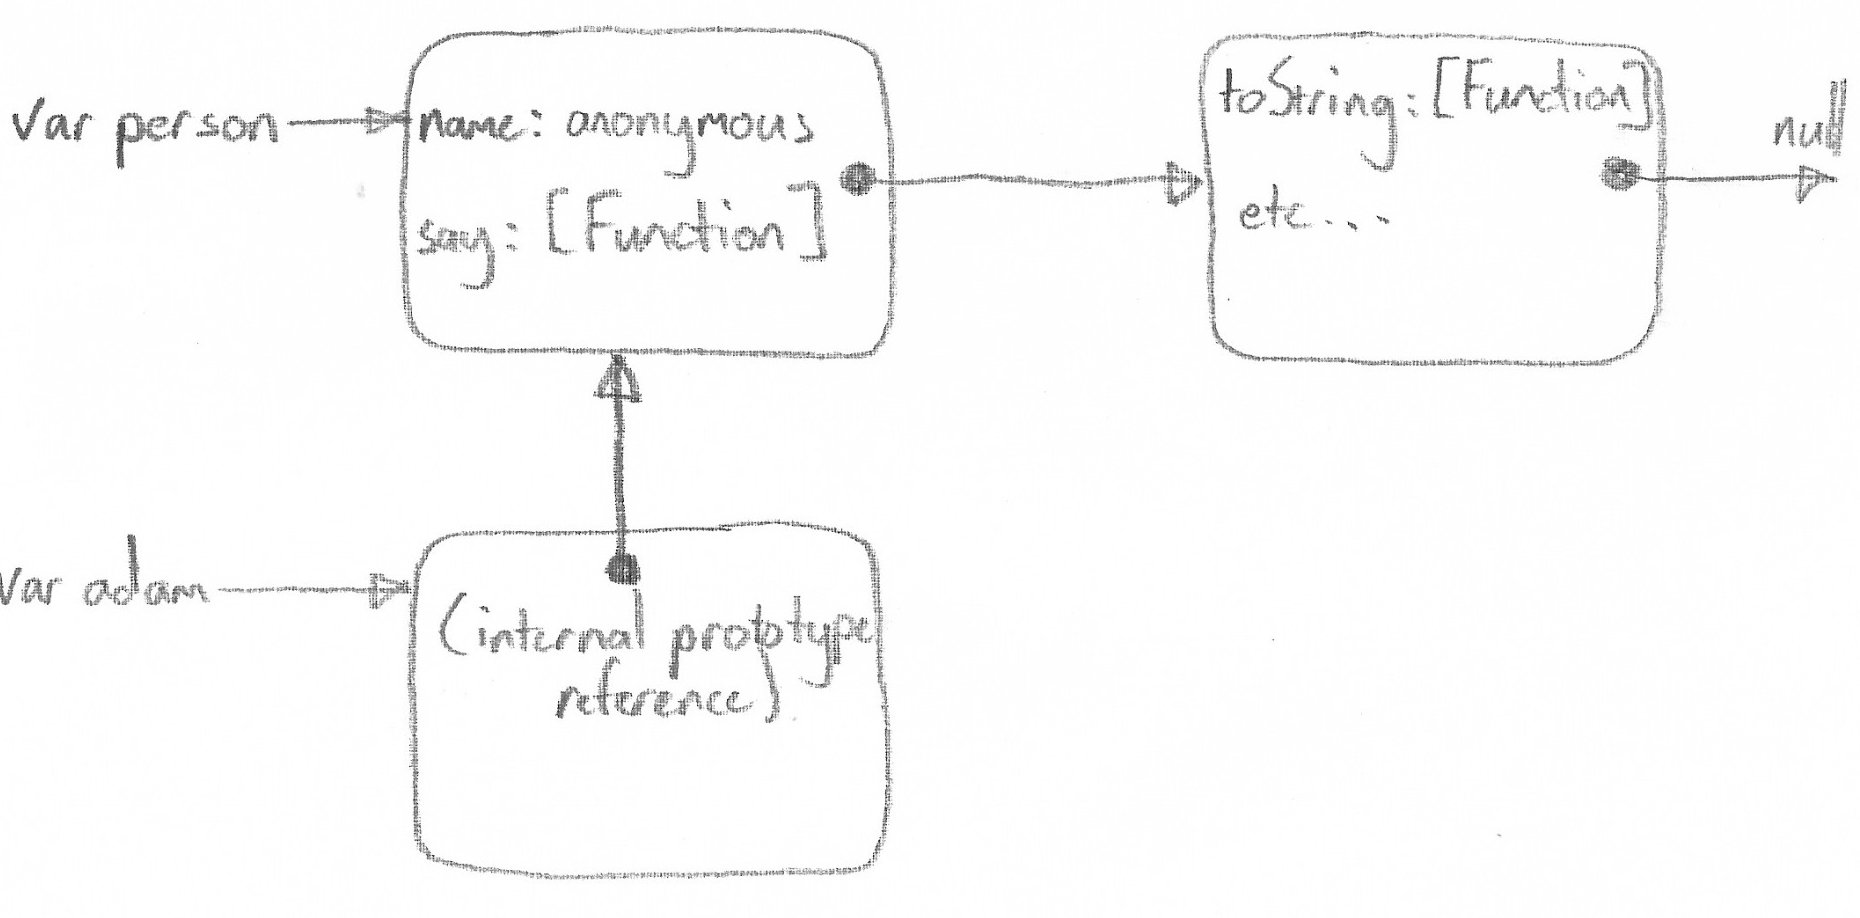 var person
name: anonymous
say: [Function]
toString: [Function]
etc...
null
var adam
(internal prototype
reference)